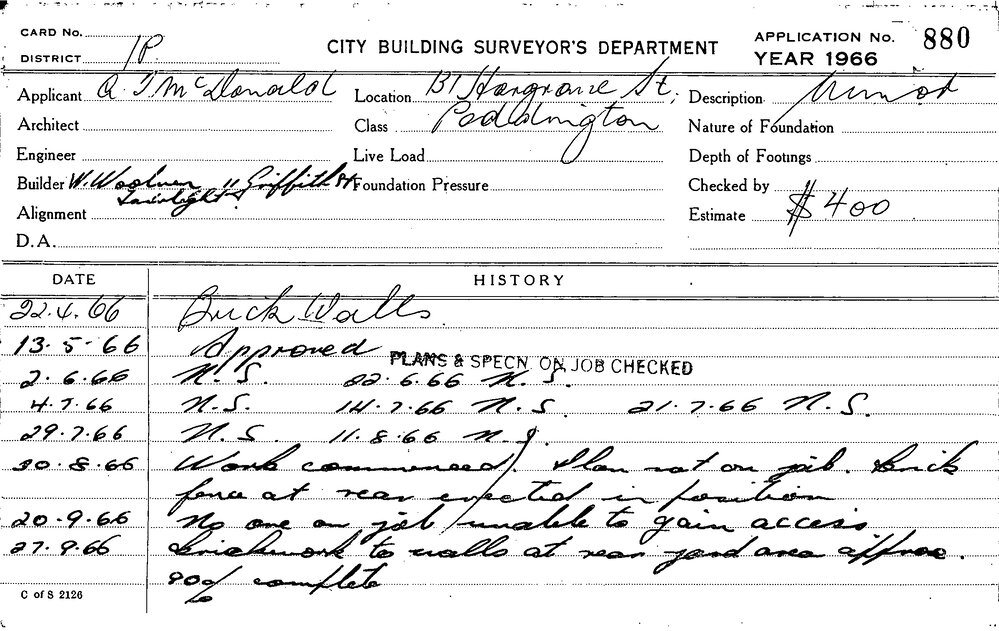 CARD No.
DISTRICT 1P.
CITY BUILDING SURVEYOR'S DEPARTMENT
APPLICATION No. 880
YEAR 1966
Applicant A J McDonald
Location 131 Hargrave St,
Paddington
Description
Architect
Class
Nature of Foundation
Engineer
Live Load
Depth of Footings
Builder W. Woolner 11 Griffith St
Fairlight
Foundation Pressure
Checked by
Alignment
Estimate $400
D.A.
DATE HISTORY
22.4.66 Brick Walls
13.5.66 Approved
PLANS & SPECN. ON JOB CHECKED
2.6.66 N.S. 22.6.66 N.S.
4.7.66 N.S. 14.7.66 N.S. 21.7.66 N.S.
29.7.66 N.S. 11.8.66 N.S.
30.8.66 Work commenced. Plan not on job. Brick
fence at rear erected in position
20.9.66 No one on job unable to gain access
27.9.66 Brickwork to walls at rear yard area approx.
90% complete
C of S 2126